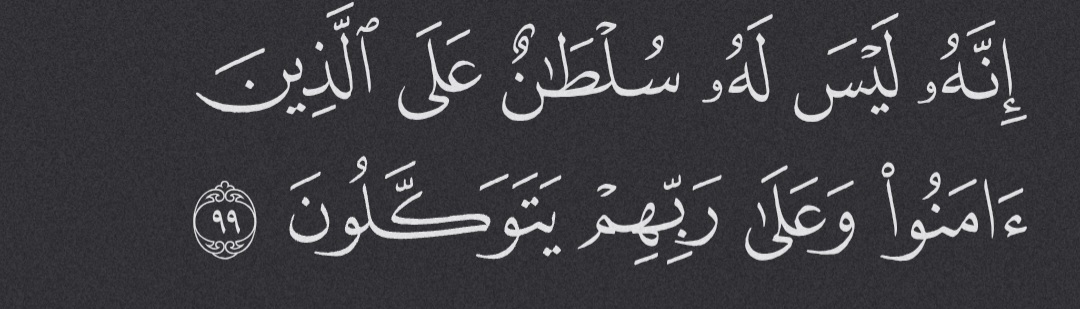 إِنَّهُۥ لَيْسَ لَهُۥ سُلْطَٰنٌ عَلَى ٱلَّذِينَ
ءَامَنُوا۟ وَعَلَىٰ رَبِّهِمْ يَتَوَكَّلُونَ ٩٩